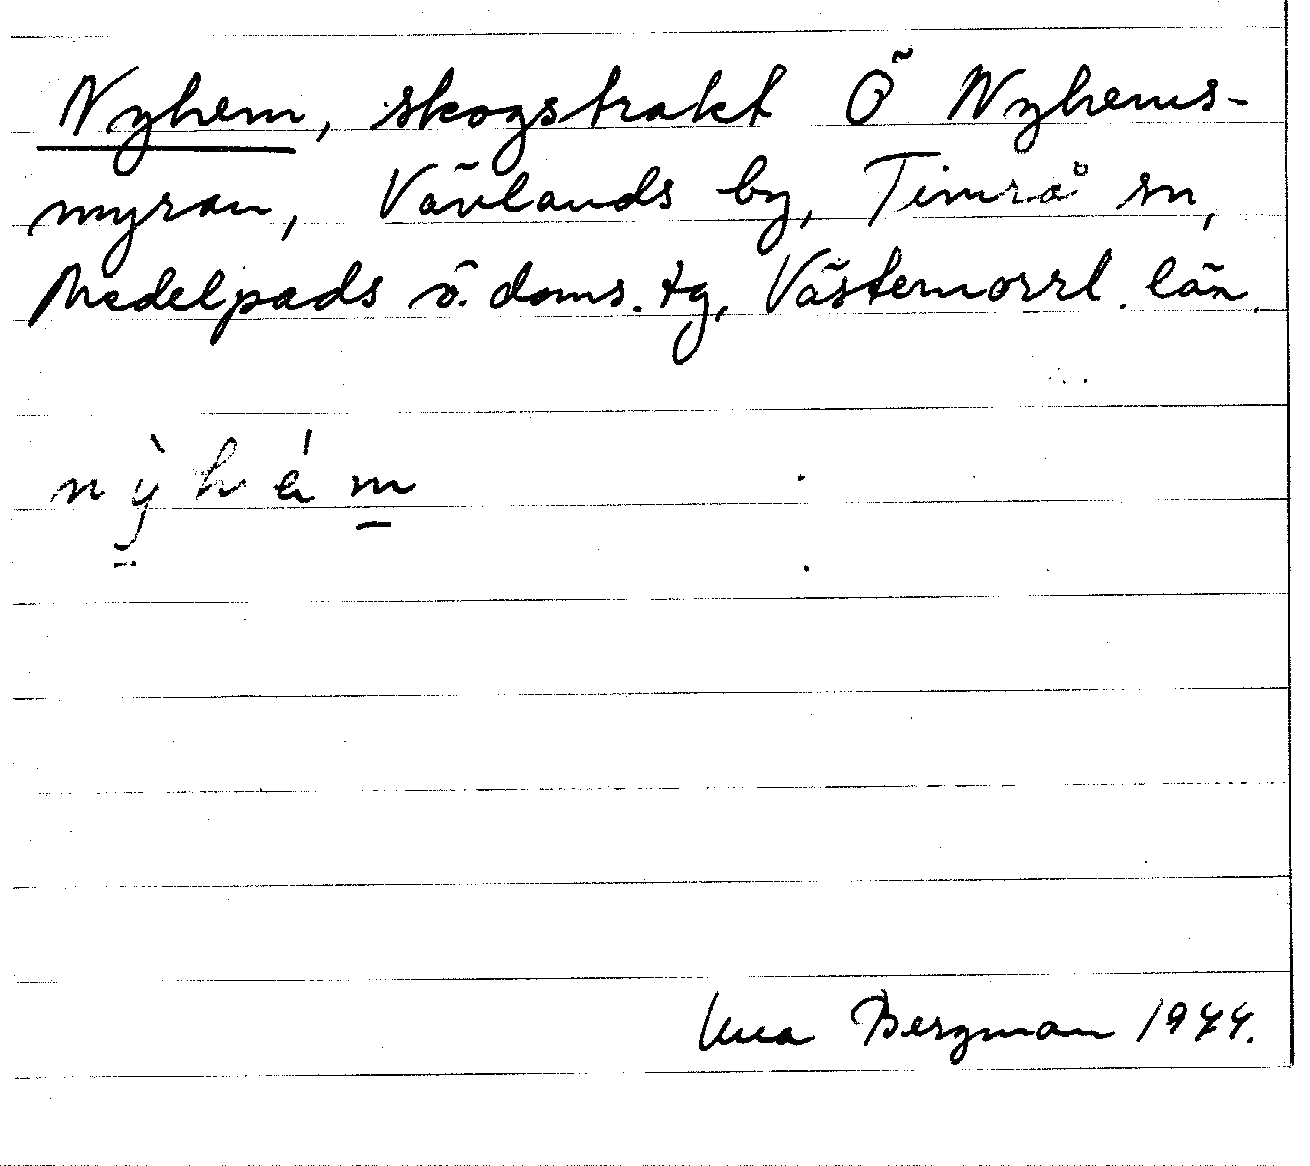 Nyhem, skogstrakt Ö Nyhems-
myran, Vävlands by, Timrå sn,
Medelpads ö. doms. tg, Västernorrl. län.
nỳhém
Bergman 1944.